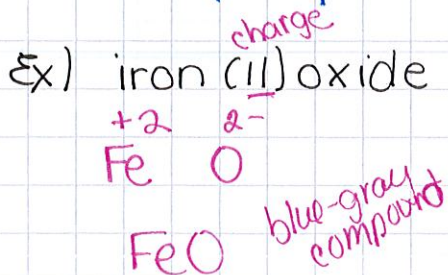 charge
Ex) iron (II) oxide
+2 2-
Fe O
FeO
blue-gray
compound